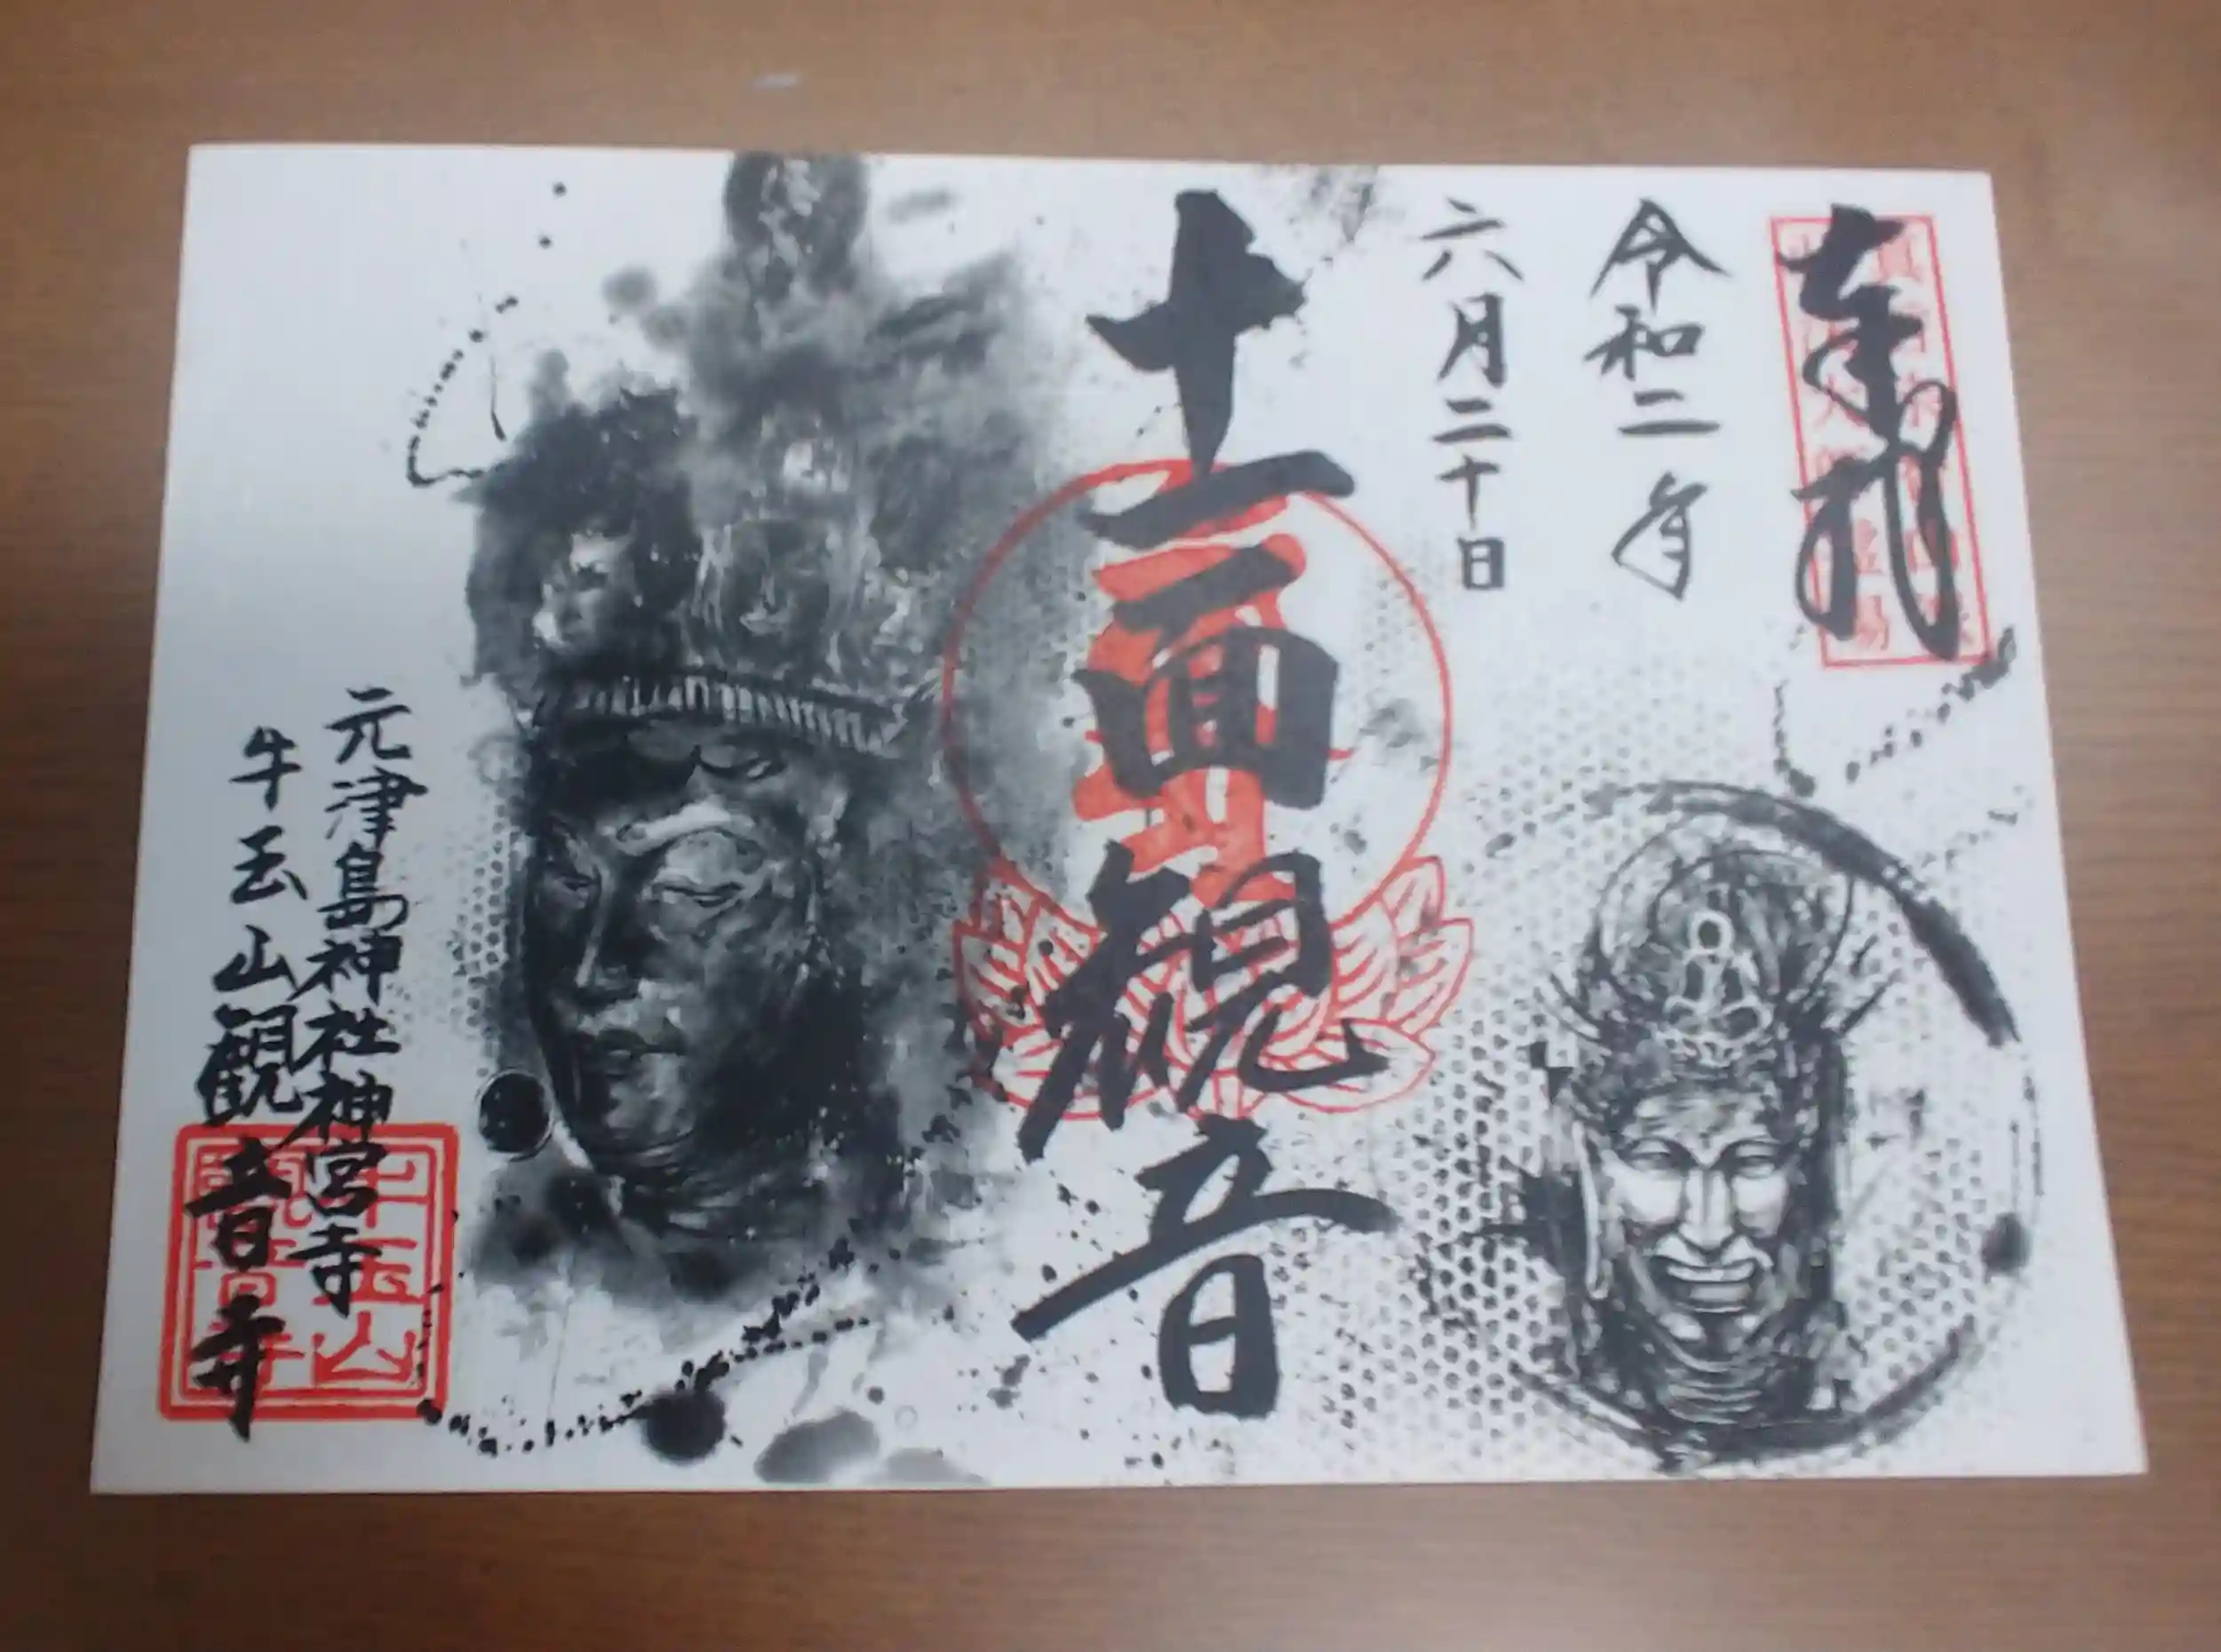 奉拝
令和二年
六月二十日
十一面観音
元津島神社神宮寺
牛玉山観音寺
牛玉山
観音寺